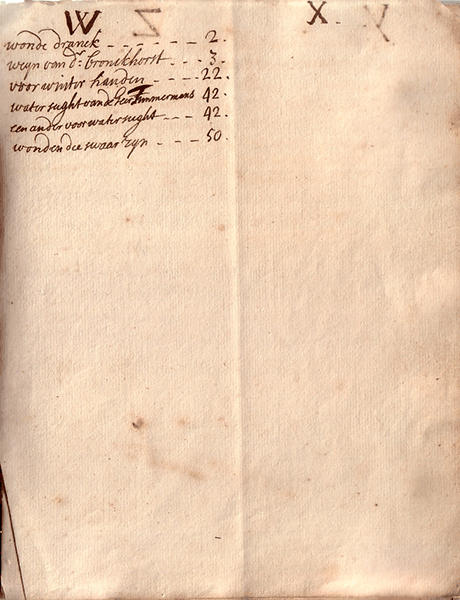 W
wonde dranck - - - - - - - 2.
weyn van dr. bronckhorst - - - 3.
voor winter handen - - - - 22.
water sught van de heer Timmermans 42.
een ander voor water sught - - - 42.
wonden die swaar zyn - - - - 50.
X